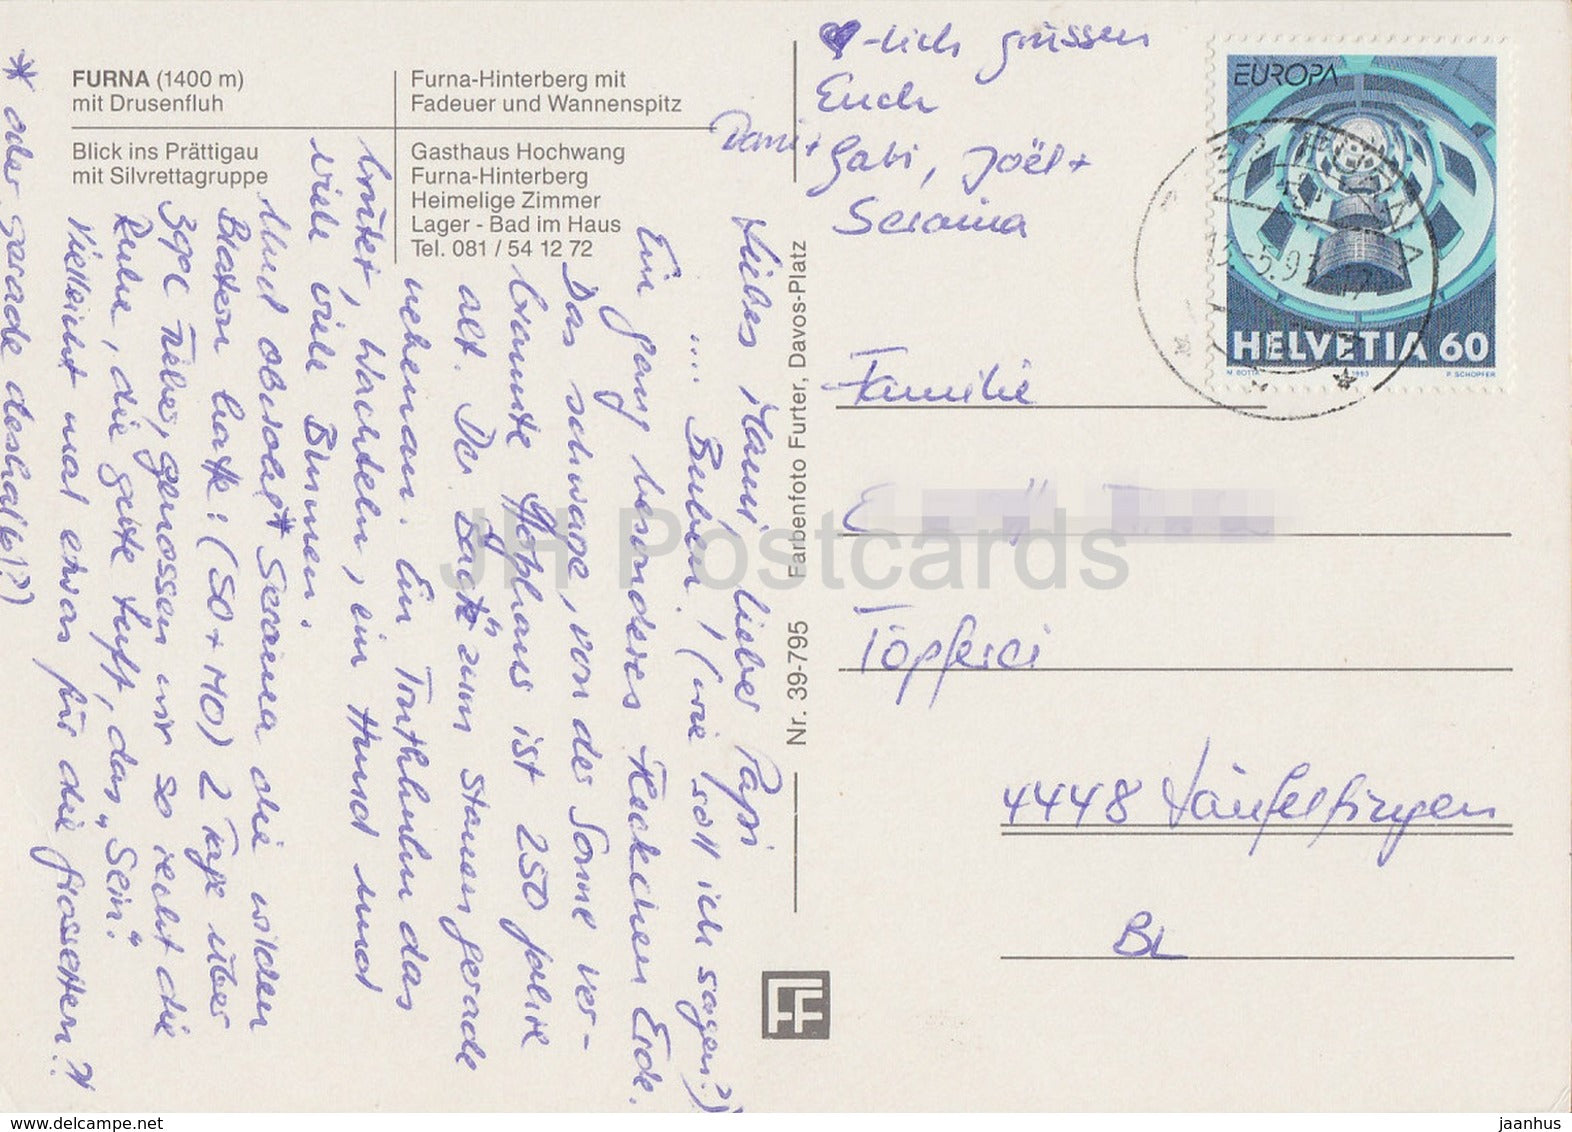 FURNA (1400 m)
mit Drusenfluh
Furna-Hinterberg mit
Fadeuer und Wannenspitz
Blick ins Prättigau
mit Silvrettagruppe
Gasthaus Hochwang
Furna-Hinterberg
Heimelige Zimmer
Lager - Bad im Haus
Tel. 081 / 54 12 72
Liebes Mami lieber Papi
.... Buben! (wie soll ich sagen?)
Ein ganz besonderes Fleckchen Erde.
Das schwarze, von der Sonne ver-
brannte Holzhaus ist 250 Jahre
alt. Der "Bagk" zum staunen gerade
nebenan. Ein Truthuhn das
brütet, Wachteln, ein Hund und
viele viele Blumen.
Und obwohl* Seraina die wilden
Blatern hatte! (50 + 40) 2 Tage über
39°C Fieber, genossen wir so recht die
Ruhe, die gute Luft, das "Sein".
Vielleicht mal etwas für die Grosseltern?!
* oder gerade deshalb!?)
Nr. 39-795 Farbenfoto Furter, Davos-Platz
FF
♥-lich grüssen
Euch
Dani +
Gabi, Joël +
Seraina
EUROPA
HELVETIA 60
M. BOTTA 1993 P. SCHOPFER
FURNA
Familie
E
Töpferei
4448 Läufelfingen
BL
JH Postcards
www.delcampe.net
jaanhus